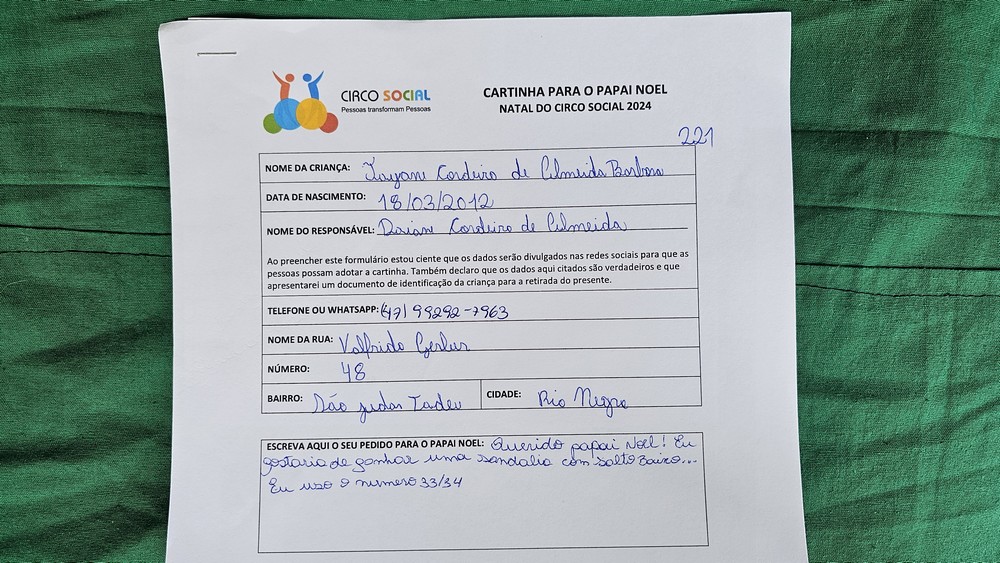 CIRCO SOCIAL
Pessoas transformam Pessoas
CARTINHA PARA O PAPAI NOEL
NATAL DO CIRCO SOCIAL 2024
221
NOME DA CRIANÇA: Kayane Cordeiro de Almeida Barbosa
DATA DE NASCIMENTO: 18/03/2012
NOME DO RESPONSÁVEL: Daiane Cordeiro de Almeida
Ao preencher este formulário estou ciente que os dados serão divulgados nas redes sociais para que as
pessoas possam adotar a cartinha. Também declaro que os dados aqui citados são verdadeiros e que
apresentarei um documento de identificação da criança para a retirada do presente.
TELEFONE OU WHATSAPP: (47) 99292-7963
NOME DA RUA: Valfrido
NÚMERO: 48
BAIRRO: São judas Tadeu CIDADE: Rio Negro
ESCREVA AQUI O SEU PEDIDO PARA O PAPAI NOEL: Querido papai Noel! Eu
gostaria de ganhar uma sandalia com salto Baixo...
Eu uso o numero 33/34